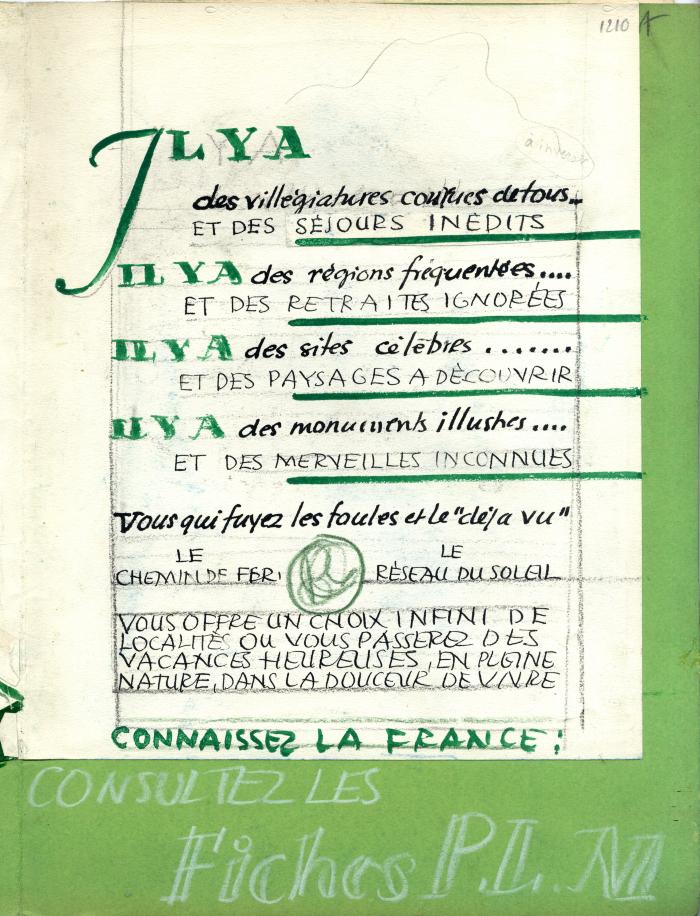 1210 A
à inverser
IL Y A
des villégiatures connues de tous...
ET DES SÉJOURS INÉDITS
IL Y A des régions fréquentées....
ET DES RETRAITES IGNORÉES
IL Y A des sites célèbres .......
ET DES PAYSAGES A DÉCOUVRIR
IL Y A des monuments illustres....
ET DES MERVEILLES INCONNUES
Vous qui fuyez les foules et le "déja vu"
LE CHEMIN DE FER
LE RÉSEAU DU SOLEIL
VOUS OFFRE UN CHOIX INFINI DE
LOCALITÉS OU VOUS PASSEREZ DES
VACANCES HEUREUSES, EN PLEINE
NATURE, DANS LA DOUCEUR DE VIVRE
CONNAISSEZ LA FRANCE :
CONSULTEZ LES
Fiches P.L.M